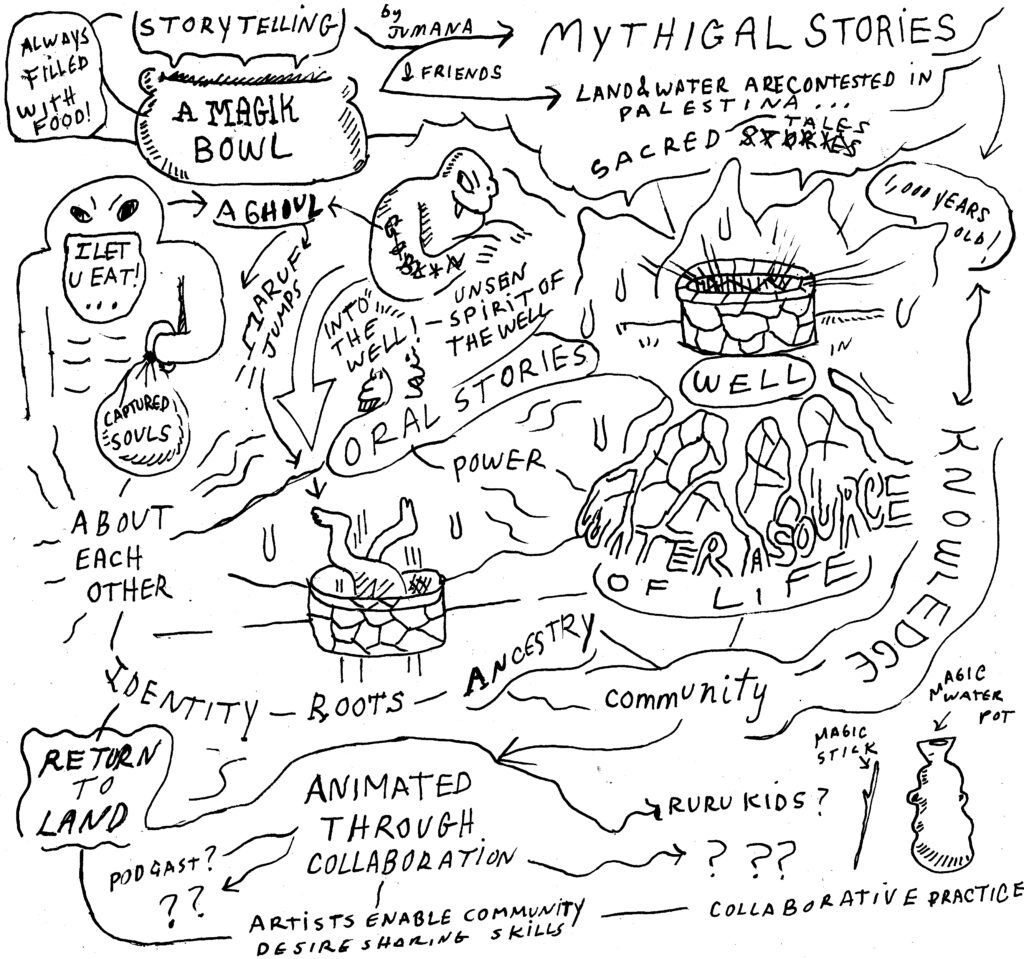 ALWAYS
FILLED
WITH
FOOD!
(STORYTELLING)
by
JUMANA
& FRIENDS
MYTHIGAL STORIES
A MAGIK
BOWL
LAND & WATER ARE CONTESTED IN
PALESTINA ...
TALES
SACRED STORIES
1,000 YEARS
OLD!
A GHOUL
I LET
U EAT!
...
MARUF
JUMPS
INTO
THE
WELL!
UNSEN
SPIRIT OF
THE WELL
CAPTURED
SOULS
ORAL STORIES
POWER
IN
WELL
WATER AS SOURCE
OF LIFE
KNOWLEDGE
ABOUT
EACH
OTHER
IDENTITY – ROOTS – ANCESTRY
community
RETURN
TO
LAND
ANIMATED
THROUGH
COLLABORATION
RURU KIDS?
? ??
MAGIC
STICK
MAGIC
WATER
POT
PODGAST?
??
ARTISTS ENABLE COMMUNITY
DESIRE SHARING SKILLS
COLLABORATIVE PRACTICE